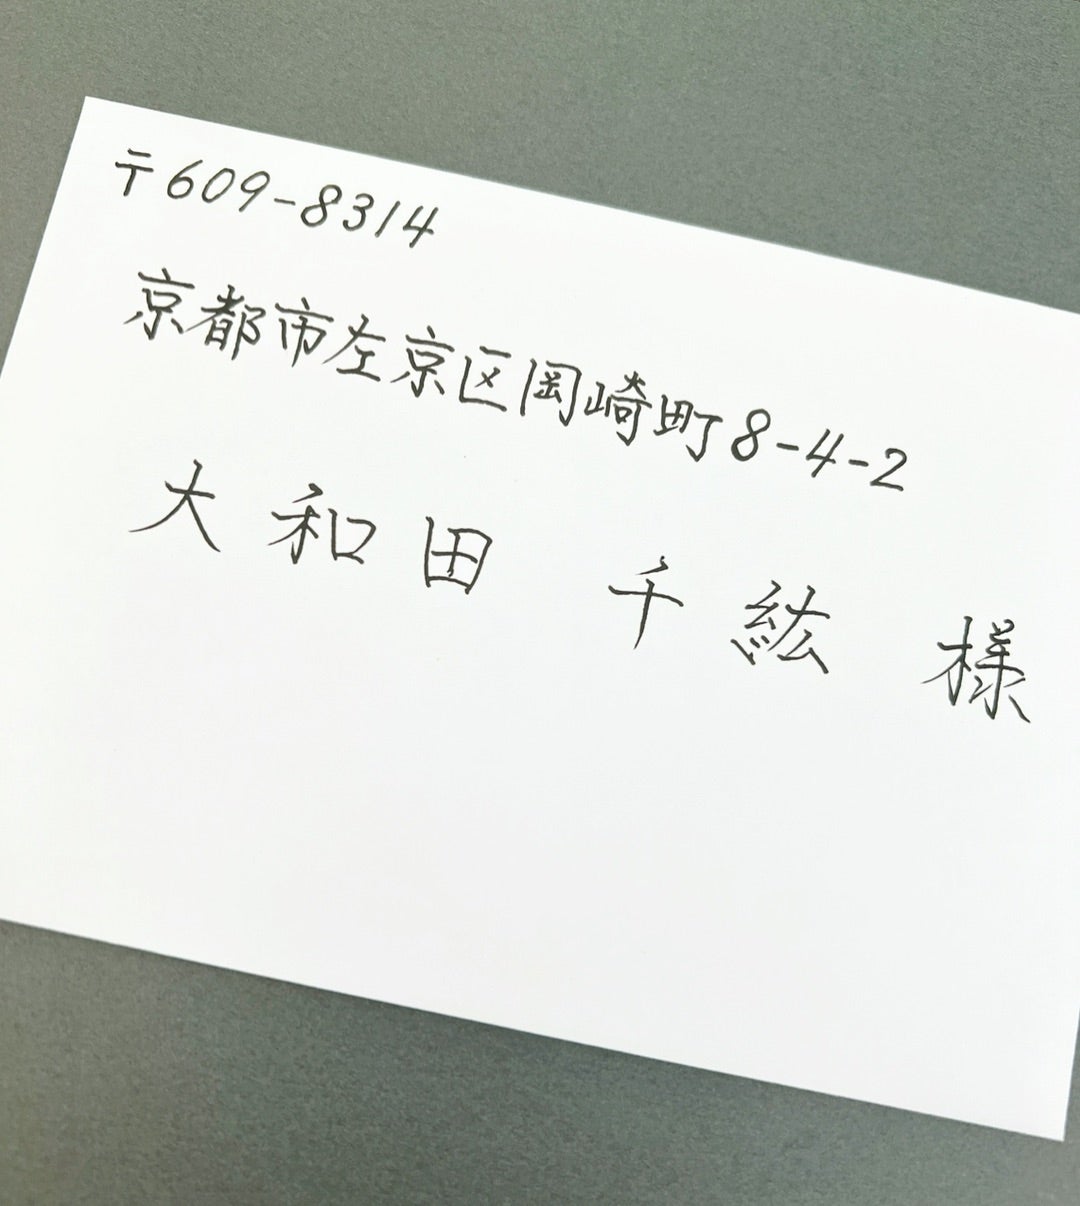 〒609-8314
京都市左京区岡崎町8-4-2
大和田 千紘 様